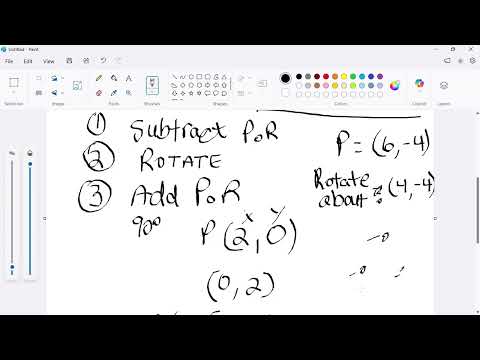 Untitled - Paint
File Edit View
Selection Image Tools Brushes Shapes Size Colors Layers
① Subtract PoR
② ROTATE
③ Add PoR
P = (6,-4)
Rotate about: (4,-4)
90°
P(2,0)
x y
(0,2)